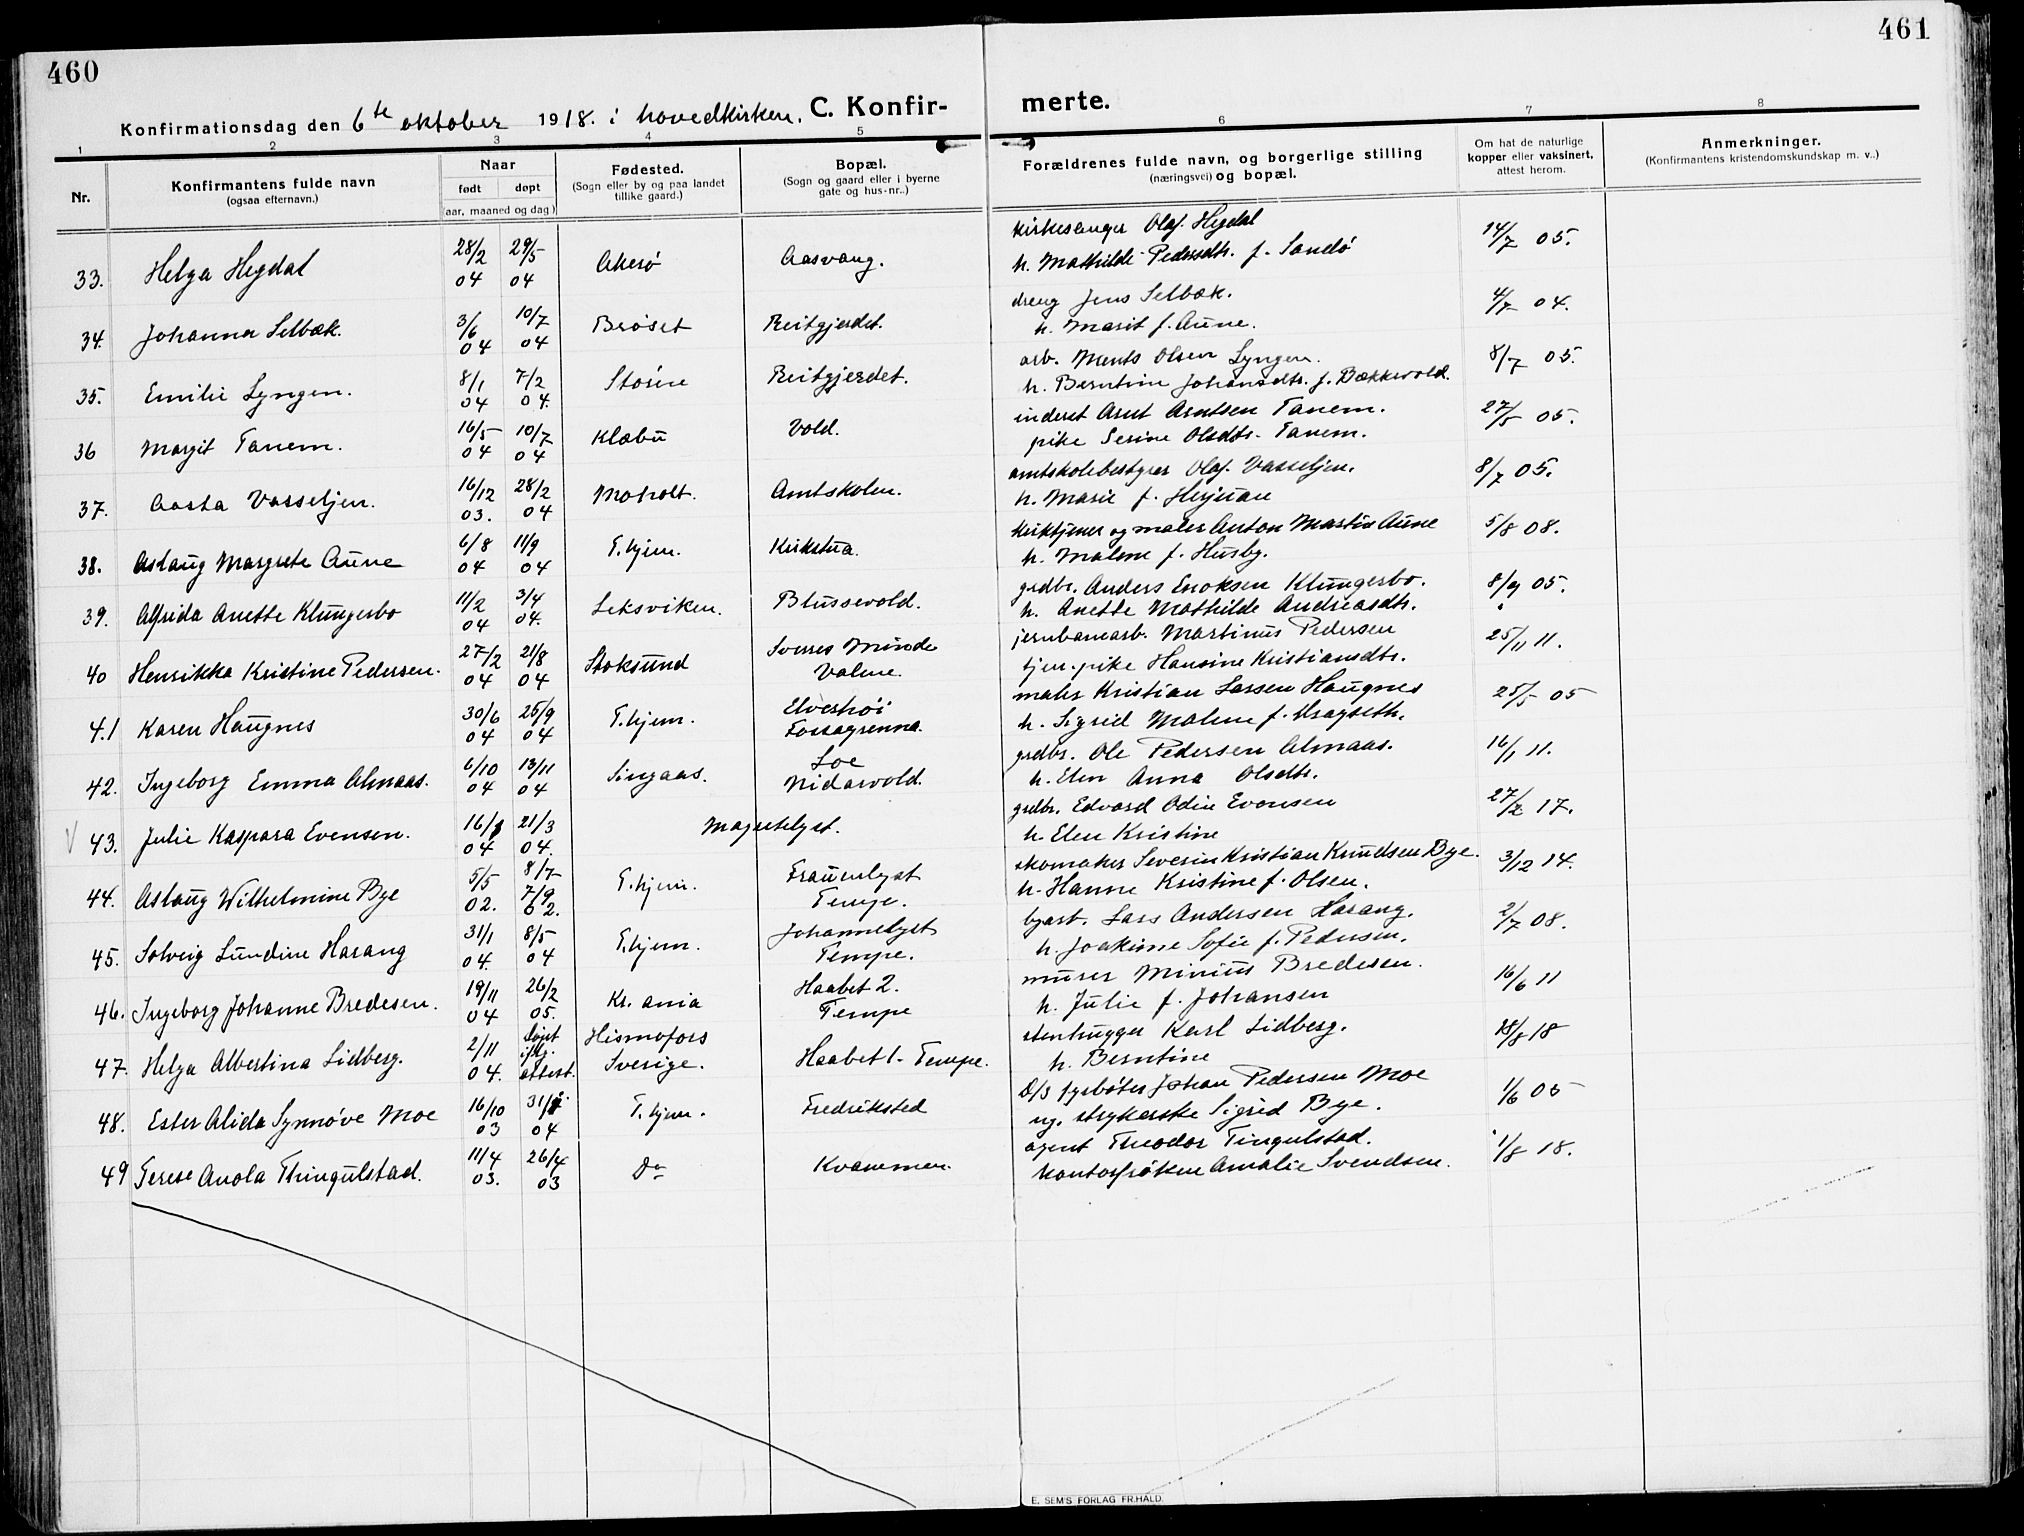 460
461
Konfirmationsdag den 6te oktober 1918. i hovedkirken. C. Konfirmerte.
1 2 3 4 5 6 7 8
Nr.
Konfirmantens fulde navn
(ogsaa efternavn.)
Naar
født døpt
(aar, maaned og dag)
Fødested.
(Sogn eller by og paa landet
tillike gaard.)
Bopæl.
(Sogn og gaard eller i byerne
gate og hus-nr..)
Forældrenes fulde navn, og borgerlige stilling
(næringsvei) og bopæl.
Om hat de naturlige
kopper eller vaksinert,
attest herom.
Anmerkninger.
(Konfirmantens kristendomskundskap m. v..)
33. Helga Hegdal 28/2 04 29/5 04 Akerø Aasvang. kirkesanger Olaf Hegdal 14/7 05.
h. Mathilde Pedersdtr. f. Sandø
34. Johanna Selbæk. 3/6 04 10/7 04 Brøset Reitgjerdet. dreng Jens Selbæk. 4/7 04.
h. Marit f. Aune.
35. Emilie Lyngen. 8/1 04 7/2 04. Støren Reitgjerdet. arb. Ments Olsen Lyngen. 8/7 05.
h. Berntine Johansdtr. f. Bækkvold.
36 Margit Tanem. 16/5 04 10/7 04 Klæbu Vold. inderst Arnt Arntsen Tanem. 27/5 05.
pike Serine Olsdtr. Tanem.
37. Aasta Vasseljen. 16/12 03. 28/2 04 Moholt. Amtskolen. amtskolebestyrer Olaf Vasseljen. 8/7 05.
h. Marie f. Herjuan
38. Aslaug Margrete Aune 6/8 04 11/9 04 T.hjem. Kirkstua. kirktjener og maler Anton Martin Aune 5/8 08.
h. Malene f. Husby.
39. Alfrida Anette Klungerbo 11/2 04 3/4 04. Leksviken. Blussevold. grdbr. Anders Enoksen Klungerbo. 8/9 05.
h. Anette Mathilde Andreasdtr.
40 Henrikka Kristine Pedersen. 27/2 04 21/8 04 Stoksund Sverres Minde Valene. jernbanearb. Martinus Pedersen 25/11 11.
tjen. pike Hansine Kristiansdtr.
41 Karen Haugnes 30/6 04 25/9 04 T.hjem. Elveshøi Fossegrenna. maler Kristian Larsen Haugnes 25/5 05
h. Sigrid Malene f. Dragseth.
42. Ingeborg Emma Almaas. 6/10 04 13/11 04 Singaas. Loe Nidarvold. grdbr. Ole Pedersen Almaas. 16/1 11.
h. Elen Anna Olsdtr.
43. Julie Kaspara Evensen. 16/1 04 21/3 04. Magretelyst. grdbr. Edvard Odin Evensen 27/2 17.
h. Elen Kristine
44. Aslaug Wilhelmine Bye 5/5 02. 8/7 7/9 02. T.hjem. Frauenlyst Tempe. skomaker Severin Kristian Knudsen Bye. 3/12 14.
h. Hanne Kristine f. Olsen.
45. Solveig Lundine Harang 31/1 04. 8/5 04 T.hjem. Johannelyst Tempe. byarb. Lars Andersen Harang. 2/7 08.
h. Joakime Sofie f. Pedersen.
46. Ingeborg Johanne Bredesen. 19/11 04 26/2 05. Kr. ania Haabet 2. Tempe murer Minius Bredesen. 16/6 11
h. Julie f. Johansen
47. Helga Albertina Lidberg. 2/11 04. døpt iflg. attest. Hismofors Sverige. Haabet 1. Tempe. stenhugger Karl Lidberg. 18/8 18
h. Berntine
48. Ester Alida Synnøve Moe 16/10 03 31/1 04 T.hjem. Fredriksted D/S fyrbøter Johan Pedersen Moe 1/6 05
ug. strykerske Sigrid Bye.
49 Terese Anola Thingulstad. 11/4 03. 26/4 03 Do Kvammen. agent Theodor Tingulstad. 1/8 18.
kontorfrøken Amalie Svendsen.
E. SEM'S FORLAG FR.HALD.